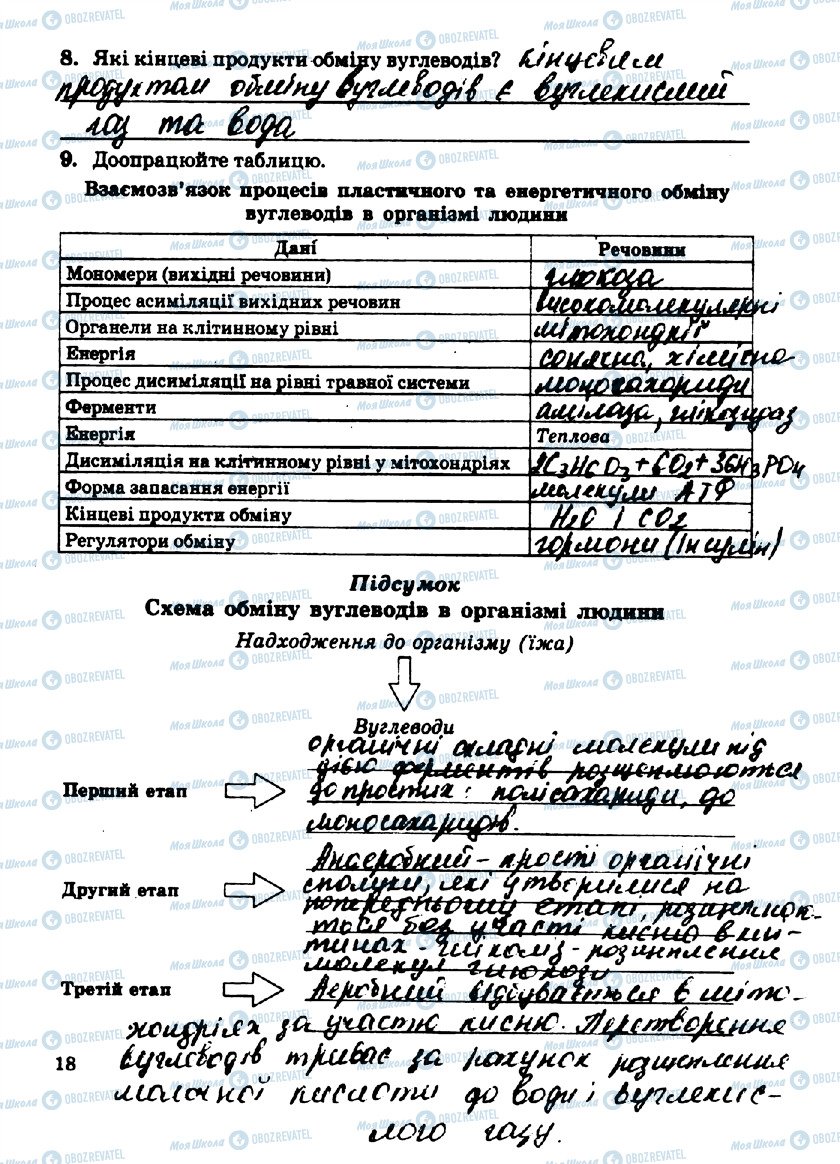 8. Які кінцеві продукти обміну вуглеводів? Кінцевим
продуктам обміну вуглеводів є вуглекислий
газ та вода
9. Доопрацюйте таблицю.
Взаємозв'язок процесів пластичного та енергетичного обміну
вуглеводів в організмі людини
Дані Речовини
Мономери (вихідні речовини) глюкоза
Процес асиміляції вихідних речовин високомолекулярні
Органели на клітинному рівні мітохондрії
Енергія сонячна, хімічна
Процес дисиміляції на рівні травної системи моносахариди
Ферменти амілаза, глікозидаз
Енергія Теплова
Дисиміляція на клітинному рівні у мітохондріях 2C3HCO3+6O2+36H3PO4
Форма запасання енергії молекули АТФ
Кінцеві продукти обміну H2O і CO2
Регулятори обміну гормони (інсулін)
Підсумок
Схема обміну вуглеводів в організмі людини
Надходження до організму (їжа)
Вуглеводи
органічні складні молекули під
дією ферментів розщеплюються
Перший етап до простих: полісахариди, до
моносахаридів.
Анаеробний - прості органічні
Другий етап сполуки, які утворилися на
попередньому етапі розщеплюю-
ться без участі кисню в клі-
тинах - гліколіз - розщеплення
молекул глюкози
Третій етап Аеробний відбувається в міто-
хондріях за участю кисню. Перетворення
18 вуглеводів триває за рахунок розщеплення
молочної кислоти до води і вуглекис-
лого газу.